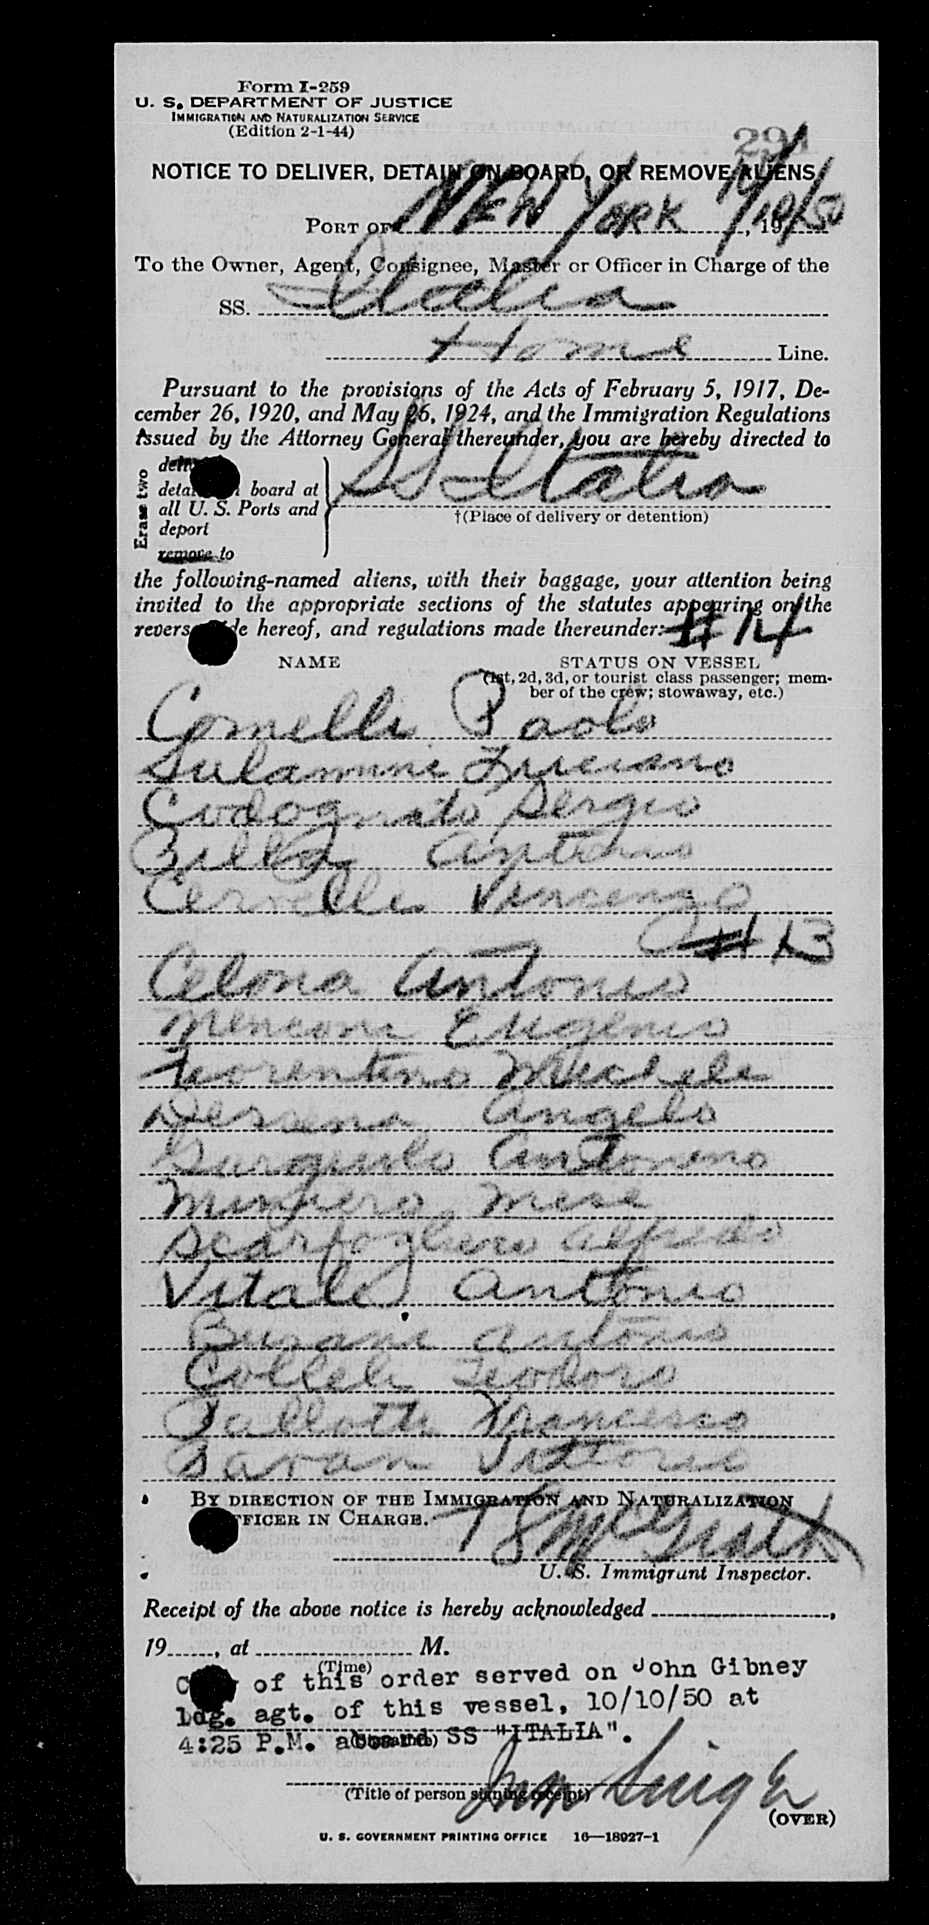 Form I-259
U. S. DEPARTMENT OF JUSTICE
IMMIGRATION AND NATURALIZATION SERVICE
(Edition 2-1-44)
291
NOTICE TO DELIVER, DETAIN ON BOARD, OR REMOVE ALIENS
PORT OF NEW YORK 10/10/50, 19
To the Owner, Agent, Consignee, Master or Officer in Charge of the
SS. Italia
Home Line.
Pursuant to the provisions of the Acts of February 5, 1917, De-
cember 26, 1920, and May 26, 1924, and the Immigration Regulations
issued by the Attorney General thereunder, you are hereby directed to
Erase two
detain on board at
all U. S. Ports and
deport
remove to
SS Italia
†(Place of delivery or detention)
the following-named aliens, with their baggage, your attention being
invited to the appropriate sections of the statutes appearing on the
reverse side hereof, and regulations made thereunder: #14
NAME STATUS ON VESSEL
(1st, 2d, 3d, or tourist class passenger; mem-
ber of the crew; stowaway, etc.)
Comelli Paolo
Sulamini Luciano
Codognato Sergio
Billa Antonio
Cervelli Vincenzo
#13
Celona Antonio
Menconi Eugenio
Fiorentino Michele
Dessena Angelo
Gargiulo Antonino
Minpero Mese
Scarfogliero Alfredo
Vitale Antonio
Busani Antonio
Colleli Teodoro
Pallotti Francesco
Savan Vittorio
BY DIRECTION OF THE IMMIGRATION AND NATURALIZATION
OFFICER IN CHARGE.
McGrath
U. S. Immigrant Inspector.
Receipt of the above notice is hereby acknowledged ,
19 , at M.
(Time)
Copy of this order served on John Gibney
ldg. agt. of this vessel, 10/10/50 at
4:25 P.M. aboard SS "ITALIA".
(Title of person signing receipt)
(OVER)
U. S. GOVERNMENT PRINTING OFFICE 16—18027-1